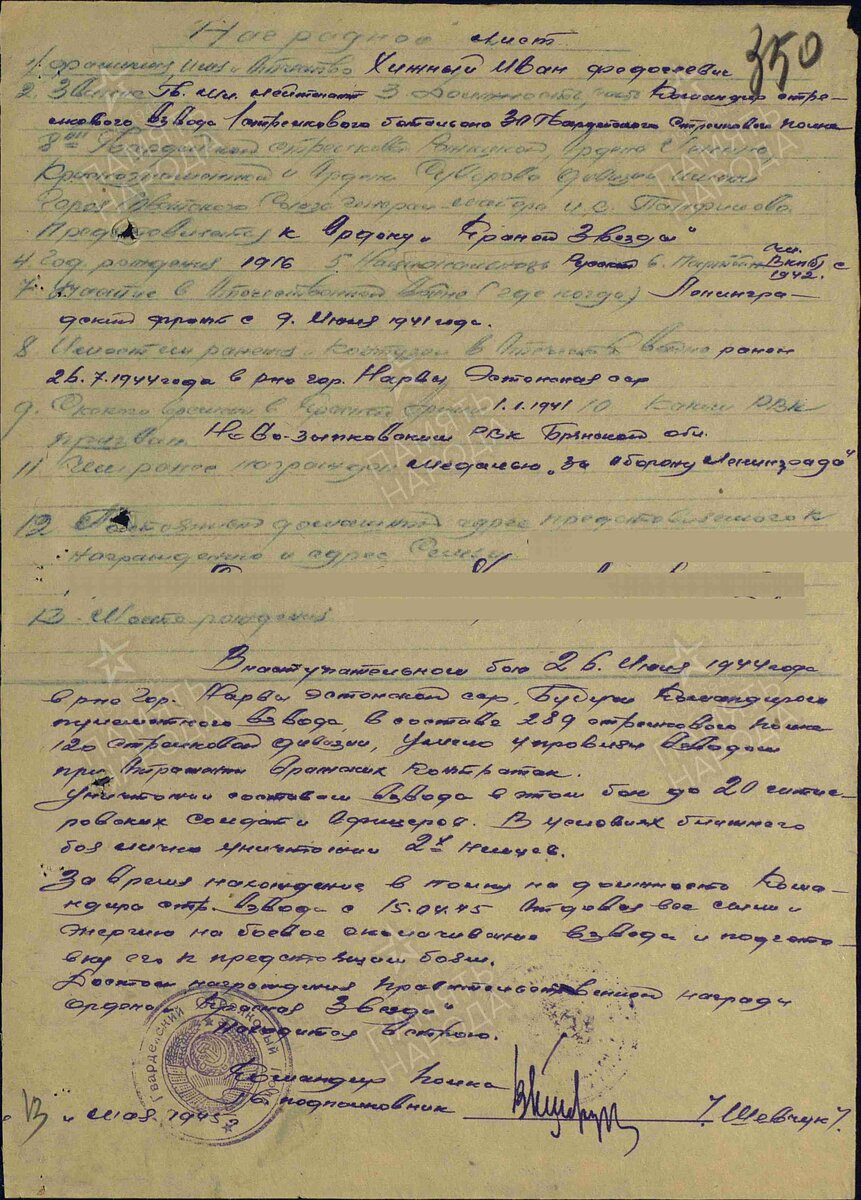 350
Наградной лист
1. Фамилия, Имя и Отчество Хижный Иван Федосеевич
2. Звание Гв. мл. лейтенант 3. Должность, часть Командир стре-
лкового взвода 1 стрелкового батальона 30 Гвардейского Стрелкового полка
8ой Гвардейской стрелковой Режицкой, Ордена Ленина,
Краснознаменной и Ордена Суворова дивизии имени
Героя Советского Союза генерал-майора И.С. Панфилова.
Представляется к Ордену "Красной Звезды"
4. Год рождения 1916 5. Национальность Русский 6. Партийн. чл. ВКП(б) с 1942.
7. Участие в Отечественной войне (где когда) Ленингра-
дский фронт с 9. Июля 1941 года.
8. Имеет ли ранения и контузии в Отечеств. войне ранен
26.7.1944 года в р-но гор. Нарвы Эстонская сср
9. С какого времени в Красной Армии 1.1.1941 10. Каким РВК
призван Ново-Зыпковским РВК Брянской обл.
11. Чем ранее награжден медалью "За оборону Ленинграда"
12. Постоянный домашний адрес представляемого к
награждению и адрес Семьи
13. Место рождения
В наступательном бою 26. Июля 1944 года
в р-но Гор. Нарвы Эстонской сср, Будучи Командиром
пулеметного взвода, в составе 289 стрелкового полка
120 стрелковой дивизии, умело управлял взводом
при Отражении Вражеских Контратак.
Уничтожил составом взвода в этом бою до 20 гитле-
ровских солдат и Офицеров. В условиях ближнего
боя лично уничтожил 2х немцев.
За время нахождение в полку на должность Кома-
ндира стр. взвода с 15.04.45 Отдовал все силы и
энергию на боевое сколачивание взвода и подгото-
вку его к предстоящим боям.
Достоин награждения правительственной награды
ордена "Красная Звезда"
Находится в строю.
Командир полка
Гв. подполковник / Шевчук /.
"13" мая 1945 г.
Гвардейский Стрелковый
ПАМЯТЬ НАРОДА